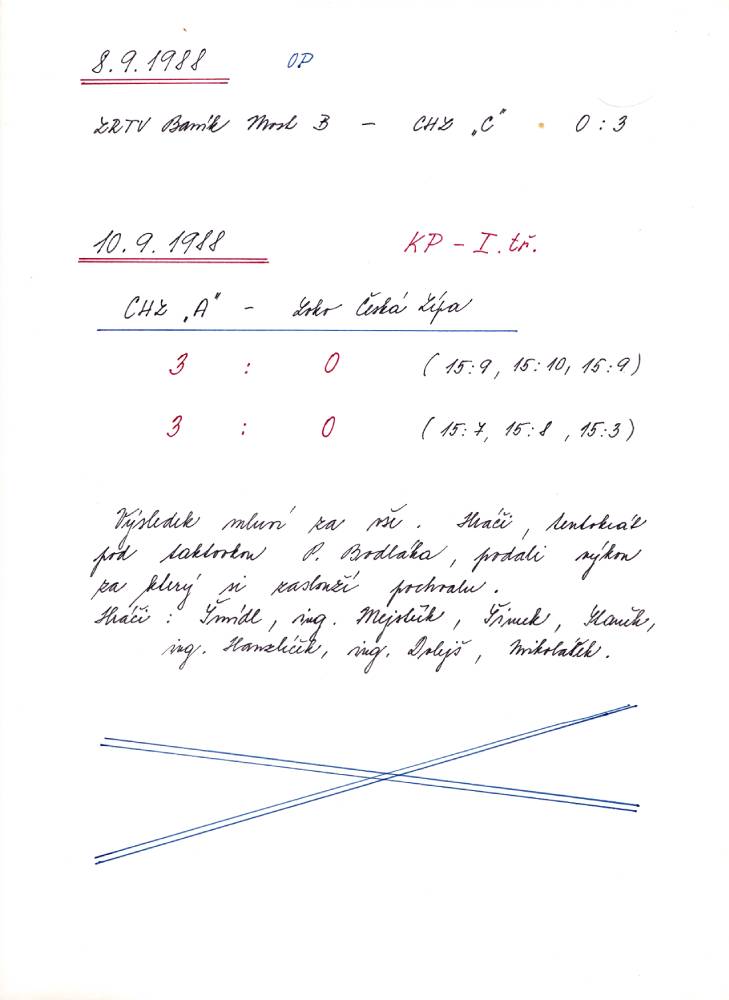 8.9.1988 OP
ZRTV Baník Most B – CHZ „C" 0 : 3
10.9.1988 KP – I. tř.
CHZ „A" – Loko Česká Lípa
3 : 0 (15:9, 15:10, 15:9)
3 : 0 (15:7, 15:8, 15:3)
Výsledek mluví za vše. Hráči, tentokrát
pod taktovkou P. Bodláka, podali výkon
za který si zaslouží pochvalu.
Hráči : Šmídl, ing. Mejstřík, Šimek, Staněk,
ing. Hanzlíček, ing. Dolejš, Mikolášek.